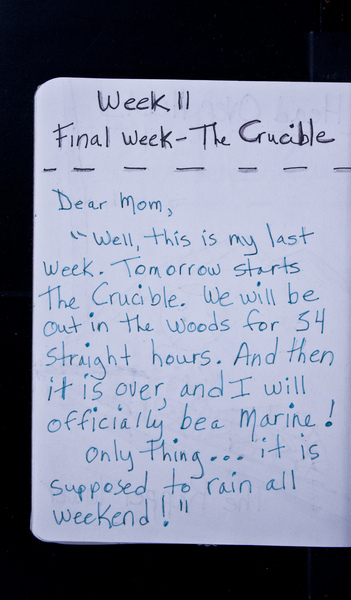 Week 11
Final Week - The Crucible
Dear Mom,
"Well, this is my last
week. Tomorrow starts
The Crucible. We will be
out in the woods for 54
straight hours. And then
it is over, and I will
officially be a Marine!
only thing... it is
supposed to rain all
weekend!"